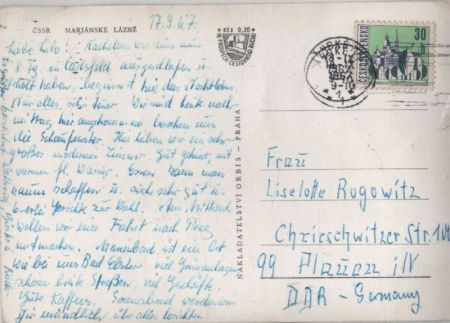 ČSSR MARIÁNSKÉ LÁZNĚ
17.9.67.
Kčs 0,20
Liebe Lilo! Nachdem wir uns nun
8 Tg. in
haben, beginnt hier das Nachtleben.
Nur alles sehr teuer. Wir sind heute nach-
mittag hier angekommen besehen uns
die Schaufenster. Hier haben wir ein sehr
großes modernes Zimmer. Gut geheizt, mit
warmen fl. Wasser. Essen kann man
kaum schaffen u. auch sehr gut u.
Gerichte zur Wahl. Am Mittwoch
wollen wir eine Fahrt nach Prag
mitmachen. Marienbad ist ein Ort
wie bei uns Bad Elster viel Grünanlagen
schöne breite Straßen, viel Geschäfte.
Gute Kaffees. Sonnabend werden wir
Dir mündlich über alles berichten.
NAKLADATELSTVÍ ORBIS - PRAHA
30
ČESKOSLOVENSKO
Frau
Liselotte Rogowitz
Chrieschwitzer Str. 104
99 Plauen i/V
DDR - Germany